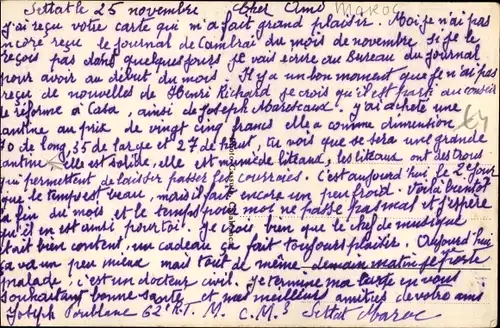 Settat le 25 novembre Cher Ami MAROC
J'ai reçu votre carte qui m'a fait grand plaisir. Moi je n'ai pas
encore reçu le journal de Cambrai du mois de novembre si je le
reçois pas dans quelques jours je vais ecrire au Bureau du Journal
pour avoir au début du mois. Il y a un bon moment que je n'ai pas
reçu de nouvelles de Henri Richard je crois qu'il est parti au conseil
de réforme à Casa, ainsi de Joseph. j'ai achété une
cantine au prix de vingt cinq francs elle a comme dimention
70 de long, 35 de large et 27 de haut, tu vois que se sera une grande
cantine elle est solide, elle est munie de liteaux, les liteaux ont des trous
qui permettent de laisser passer les courroies. C'est aujourd'hui le 2e jour
que le temps est beau, mais il fait encore un peu froid. Voilà bientôt
la fin du mois, et le temps pour moi ne passe pas mal et j'espère
qu'il en est ainsi pour toi. Je crois bien que le chef de musique
était bien content, un cadeau ça fait toujours plaisir. Aujourd'hui
ça va un peu mieux mais tout de même demain matin je
malade, c'est un docteur civil. Je termine ma carte en vous
souhaitant bonne santé et mes meilleurs amitiés de votre ami
Joseph 62e R.T. M. C.M.3 Settat Maroc